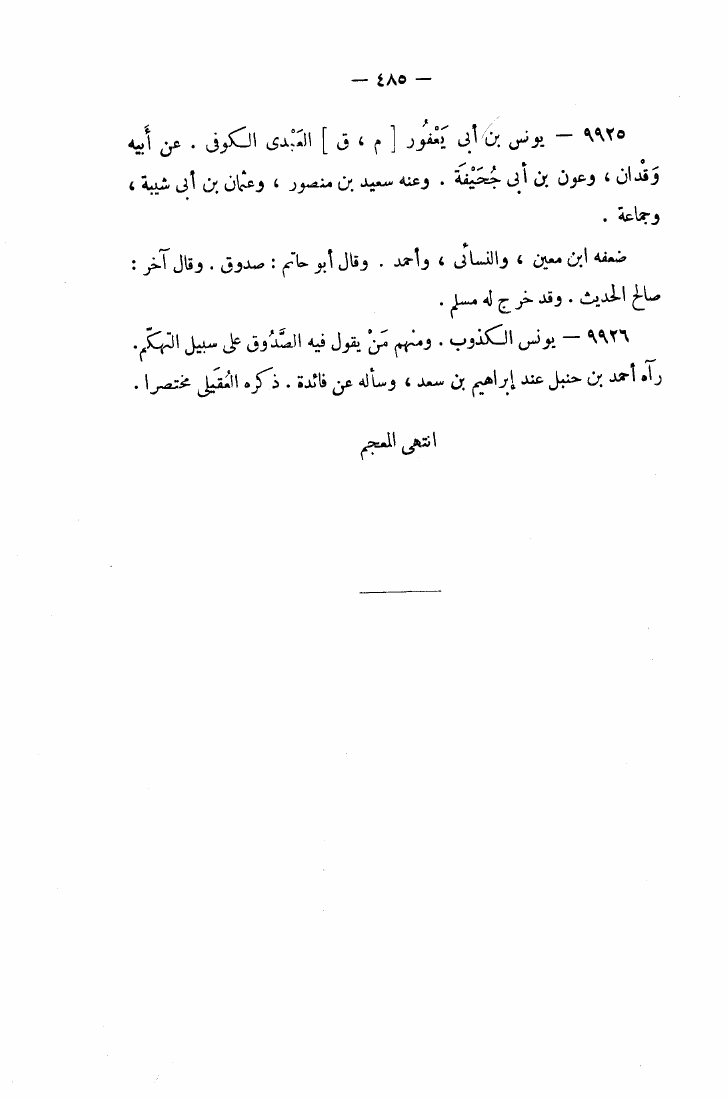 — ٤٨٥ —
٩٩٢٥ — يونس بن أبى يَعْفُور [ م ، ق ] العَبْدى الكوفى . عن أَبيه
وَقْدان ، وعون بن أبى جُحَيْفَة . وعنه سعيد بن منصور ، وعثمان بن أبى شيبة ،
وجماعة .
ضعفه ابن معين ، والنسائى ، وأحمد . وقال أبو حاتم : صدوق . وقال آخر :
صالح الحديث . وقد خرج له مسلم .
٩٩٢٦ — يونس الكذوب . ومنهم مَنْ يقول فيه الصَّدُوق على سبيل التهكّم .
رآه أحمد بن حنبل عند إبراهيم بن سعد ، وسأله عن فائدة . ذكره العُقَيلى مختصرا .
انتهى المعجم